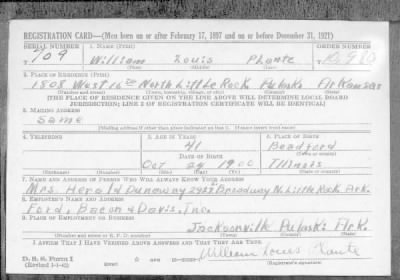 REGISTRATION CARD—(Men born on or after February 17, 1897 and on or before December 31, 1921)
SERIAL NUMBER 1. NAME (Print) ORDER NUMBER
T 709 William Louis Plante
2. PLACE OF RESIDENCE (Print)
1808 West 16th North Little Rock Pulaski Arkansas
[THE PLACE OF RESIDENCE GIVEN ON THE LINE ABOVE WILL DETERMINE LOCAL BOARD
JURISDICTION; LINE 2 OF REGISTRATION CERTIFICATE WILL BE IDENTICAL]
3. MAILING ADDRESS
Same
[Mailing address if other than place indicated on line 2. If same insert word same]
4. TELEPHONE 5. AGE IN YEARS 6. PLACE OF BIRTH
41 Beadford
DATE OF BIRTH
Oct 24 1900 Illinois
7. NAME AND ADDRESS OF PERSON WHO WILL ALWAYS KNOW YOUR ADDRESS
Mrs. Herold Dunaway Broadway N. Little Rock Ark.
8. EMPLOYER'S NAME AND ADDRESS
Ford, Bacon & Davis, Inc.
9. PLACE OF EMPLOYMENT OR BUSINESS
Jacksonville Pulaski Ark.
I AFFIRM THAT I HAVE VERIFIED ABOVE ANSWERS AND THAT THEY ARE TRUE.
D. S. S. Form 1 William Louis Plante
(Revised 1-1-42) (Registrant's signature)